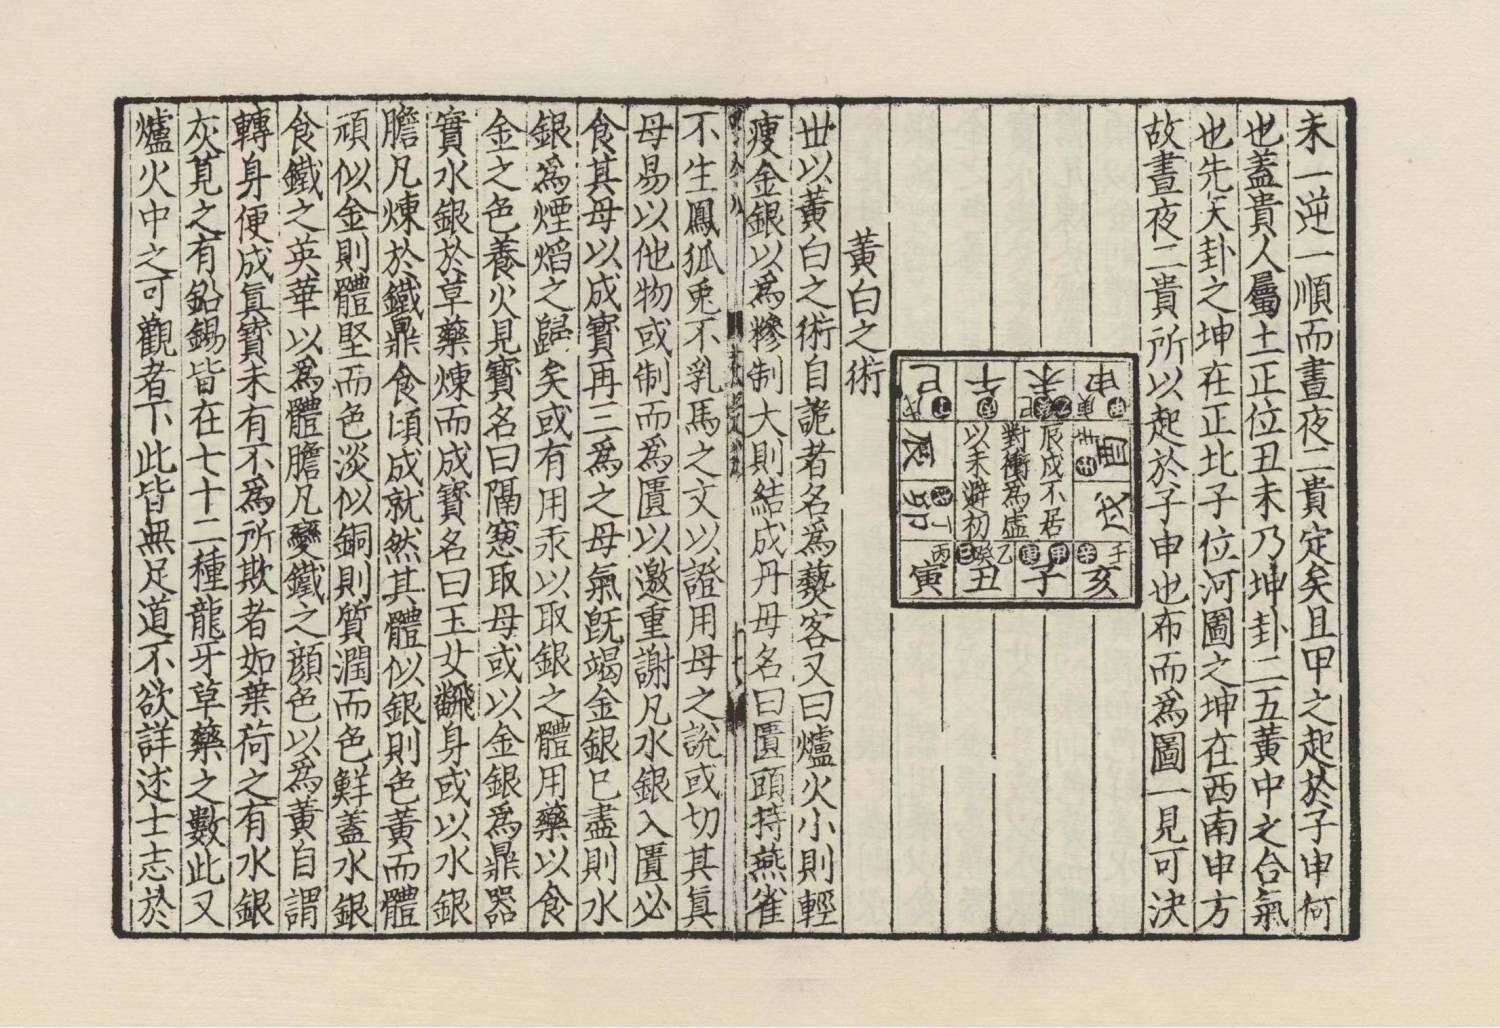 未一逆一順而晝夜二貴定矣且甲之起於子申何
也蓋貴人屬土正位丑未乃坤卦二五黃中之合氣
也先天卦之坤在正北子位河圖之坤在西南申方
故晝夜二貴所以起於子申也布而為圖一見可決
申
未
午
巳
庚
己
戊
酉
戌
辰
卯
辛
丁
辰戌不居
對衝為虛
以未避初
壬
辛
甲
乙
癸
丙
亥
子
丑
寅
黃白之術
丗以黃白之術自詭者名為藝客又曰爐火小則輕
瘦金銀以為糝制大則結成丹母名曰匱頭持燕雀
不生鳳狐兎不乳馬之文以證用母之說或切其眞
母易以他物或制而為匱以邀重謝凡水銀入匱必
食其母以成寳再三為之母氣旣竭金銀巳盡則水
銀為煙熖之歸矣或有用汞以取銀之體用藥以食
金之色養火見寳名曰隔窓取母或以金銀為鼎器
實水銀於草藥煉而成寳名曰玉女飜身或以水銀
膽凡煉於鐵鼎食頃成就然其體似銀則色黃而體
頑似金則體堅而色淡似銅則質潤而色鮮蓋水銀
食鐵之英華以為體膽凡變鐵之顔色以為黃自謂
轉身便成眞寳未有不為所欺者如葉荷之有水銀
灰莧之有鉛錫皆在七十二種龍牙草藥之數此又
爐火中之可觀者下此皆無足道不欲詳述士志於